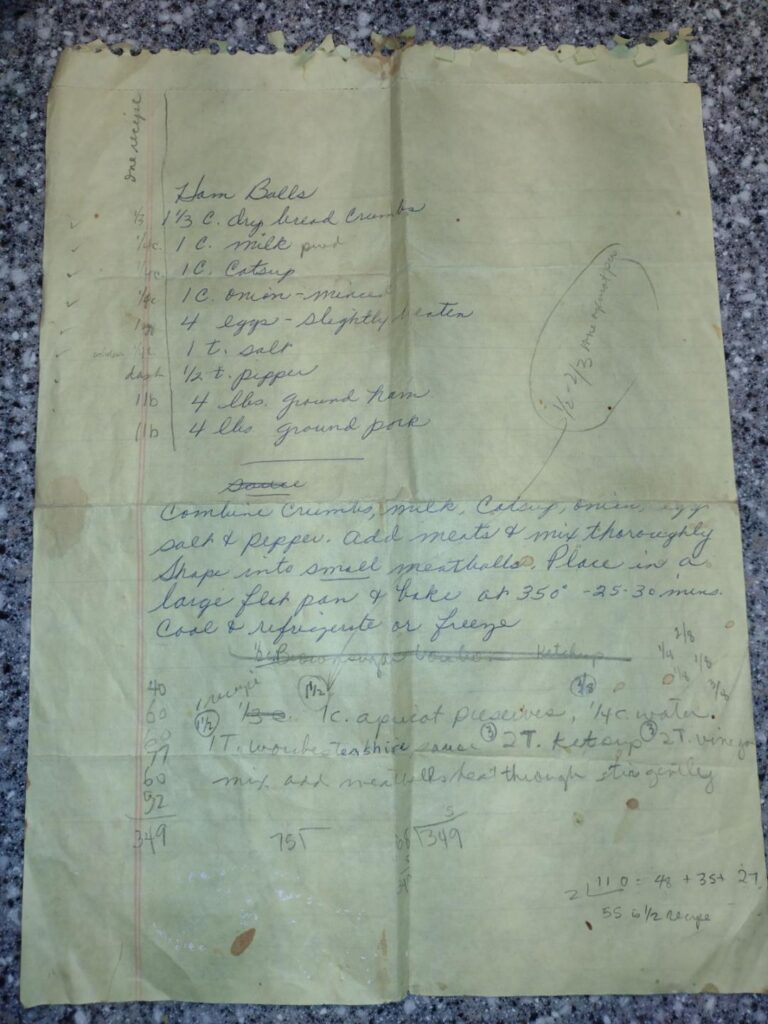 one recipe
Ham Balls
1/3 1 1/3 C. dry bread crumbs
1 C. milk pwd
1 C. Catsup
1 C. onion - minced
4 eggs - slightly beaten
1 t. salt
dash 1/2 t. pepper
1 lb 4 lbs. ground ham
1 lb 4 lbs ground pork
1/2 - 2/3
Sauce
Combine Crumbs, milk, Catsup, onion, egg
salt & pepper. Add meats & mix thoroughly
Shape into small meatballs. Place in a
large flat pan & bake at 350° - 25-30 mins.
Cool & refrigerate or freeze
Brown sugar bourbon Ketchup
1/4 2/8
1/8 1/8
3/8
1 recipe
1 1/2 3/8
1/3 c. 1c. apricot preserves, 1/4 c. water.
1 1/2 1 T. worchestershire sauce 3 2 T. Ketsup 3 2 T. vinegar
mix add meatballs heat through stir gently
40
60
60
77
60
92
349
75
68 349
5
2 110 = 48 + 35 + 27
55 is 1/2 recipe